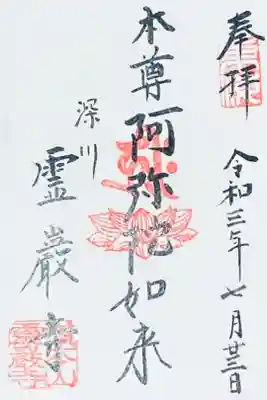 奉拝
令和三年七月廿三日
本尊阿弥陀如来
深川
霊巖寺